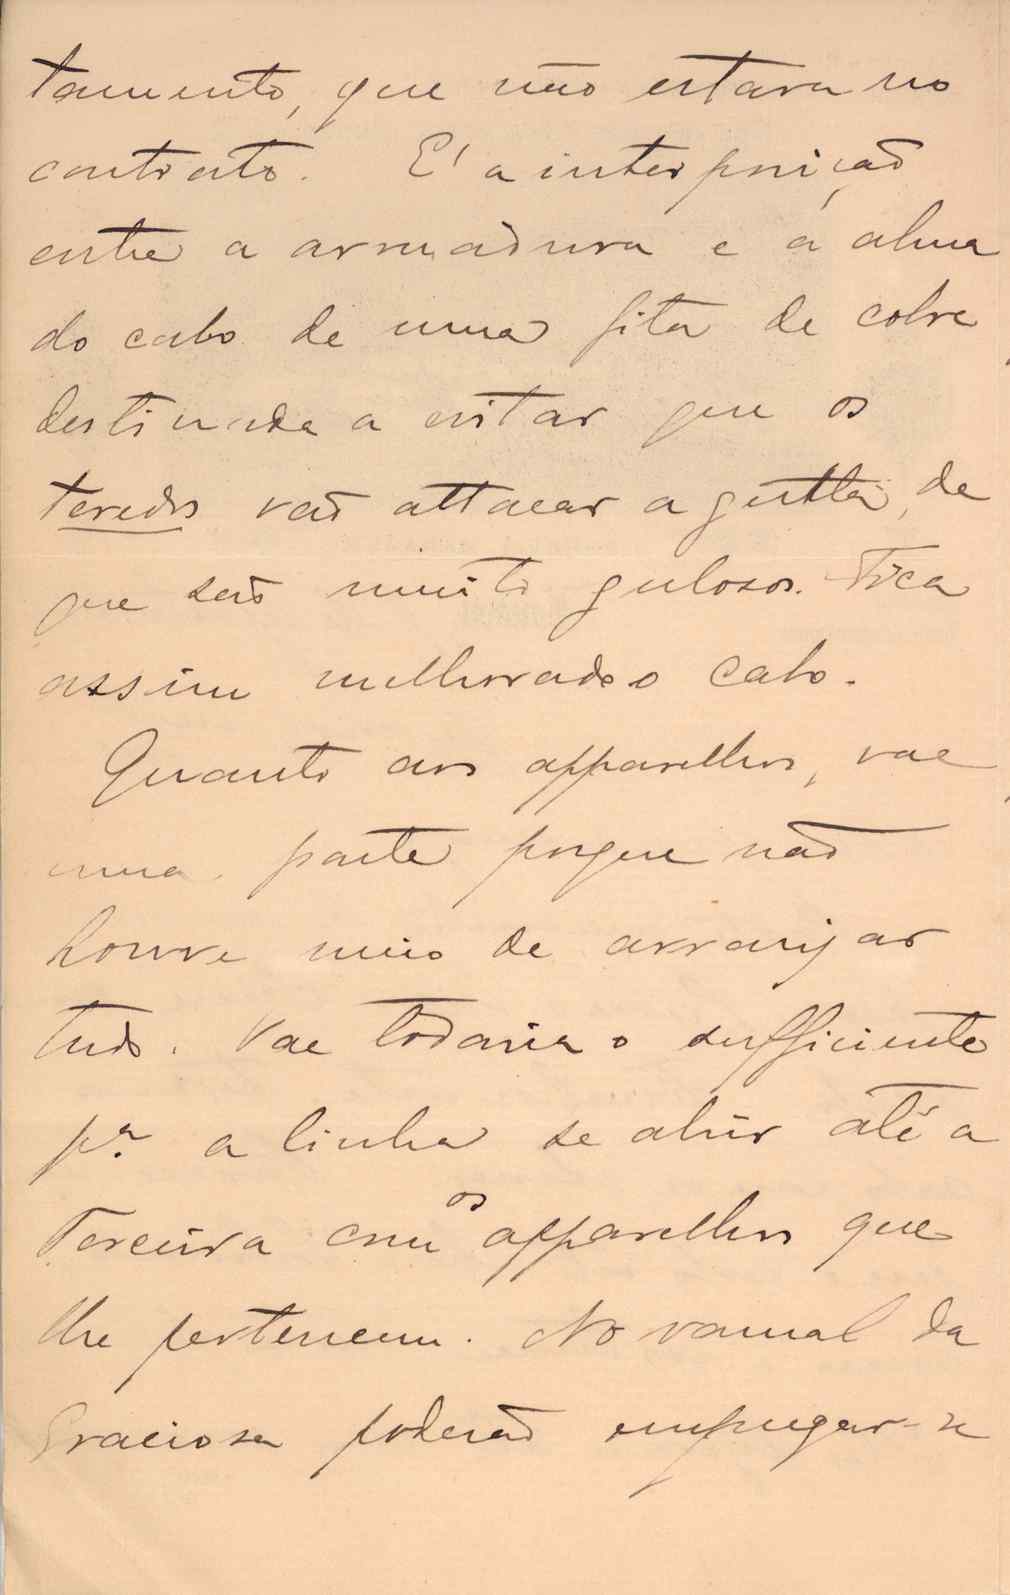 tamento, que não estava no
contrato. E' a interposição
entre a armadura e a alma
do cabo de uma fita de cobre
destinada a evitar que os
teredos vão attacar a gutta, de
que são muito gulosos. Fica
assim melhorado o cabo.
Quanto aos apparelhos, vae
uma parte porque não
houve meio de arranjar
tudo. Vae todavia o sufficiente
pª a linha se abrir até a
Terceira com os apparelhos que
lhe pertencem. No ramal da
Graciosa poderão empregar-se